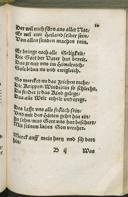 Der wil euch
Er wil ewr Heiland selber sein/
Von allen sünden machen rein.
Er bringt euch alle Seligkeit/
Die Gott der Vater hat bereit/
Das jr mit vns im Himelreich/
Solt leben nu vnd ewigleich.
So mercket nu das zeichen recht/
Die Krippen/ Windelin so schlecht/
Da findet jr das Kind gelegt/
Das alle Welt erhelt vnd tregt.
Des lasst vns alle frölich sein/
Vnd mit den Hirten gehn hin ein/
Zu sehen was Gott vns hat beschert/
Mit seinem lieben Son verehrt.
Merck auff mein hertz vnd sich dort
hin/
B ij Was